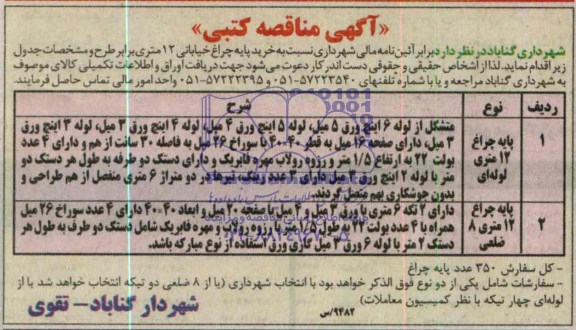 «آگهی مناقصه کتبی»
شهرداری گناباد در نظر دارد برابر آئین نامه مالی شهرداری نسبت به خرید پایه چراغ خیابانی ۱۲ متری برابر طرح و مشخصات جدول
زیر اقدام نماید. لذا از اشخاص حقیقی و حقوقی دست اندر کار دعوت می شود جهت دریافت اوراق و اطلاعات تکمیلی کالای موصوف
به شهرداری گناباد مراجعه و یا با شماره تلفنهای ۵۷۲۲۳۵۴۰-۰۵۱ و ۵۷۲۲۲۳۹۵-۰۵۱ واحد امور مالی تماس حاصل فرمایند.
ردیف نوع شرح
۱ پایه چراغ ۱۲ متری لوله‌ای
متشکل از لوله ۶ اینچ ورق ۵ میل، لوله ۵ اینچ ورق ۴ میل، لوله ۴ اینچ ورق ۳ میل، لوله ۳ اینچ ورق
۳ میل، دارای صفحه ۱۶ میل به قطر ۴۰*۴۰ با سوراخ ۲۶ میل به فاصله ۳۰ سانت از هم و دارای ۴ عدد
بولت ۲۲ به ارتفاع ۱/۵ متر و رزوه رولاب مهره فابریک و دارای دستک دو طرفه به طول هر دستک دو
متر با لوله ۲ اینچ ورق ۲ میل دارای ۳ عدد رینگ، تیرها در دو متراژ ۶ متری منفصل از هم طراحی و
بدون جوشکاری بهم متصل گردند.
۲ پایه چراغ ۱۲ متری ۸ ضلعی
دارای ۲ تکه ۶ متری با ورق ۳ میل و ۴ میل با صفحه ۲۰ میل و ابعاد ۴۰*۴۰ دارای ۴ عدد سوراخ ۲۶ میل
همراه با ۴ عدد بولت ۲۲ به طول ۱/۵ متر با رزوه رولاب و مهره فابریک شامل دستک دو طرف به طول هر
دستک ۲ متر با لوله ۶ ورق ۲ میل گازی ورق استفاده از نوع مبارکه باشد.
- کل سفارش ۳۵۰ عدد پایه چراغ
- سفارشات شامل یکی از دو نوع فوق الذکر خواهد بود با انتخاب شهرداری (یا از ۸ ضلعی دو تیکه انتخاب خواهد شد یا از
لوله‌ای چهار تیکه با نظر کمیسیون معاملات)
شهردار گناباد- تقوی
۹۴۸۲/س